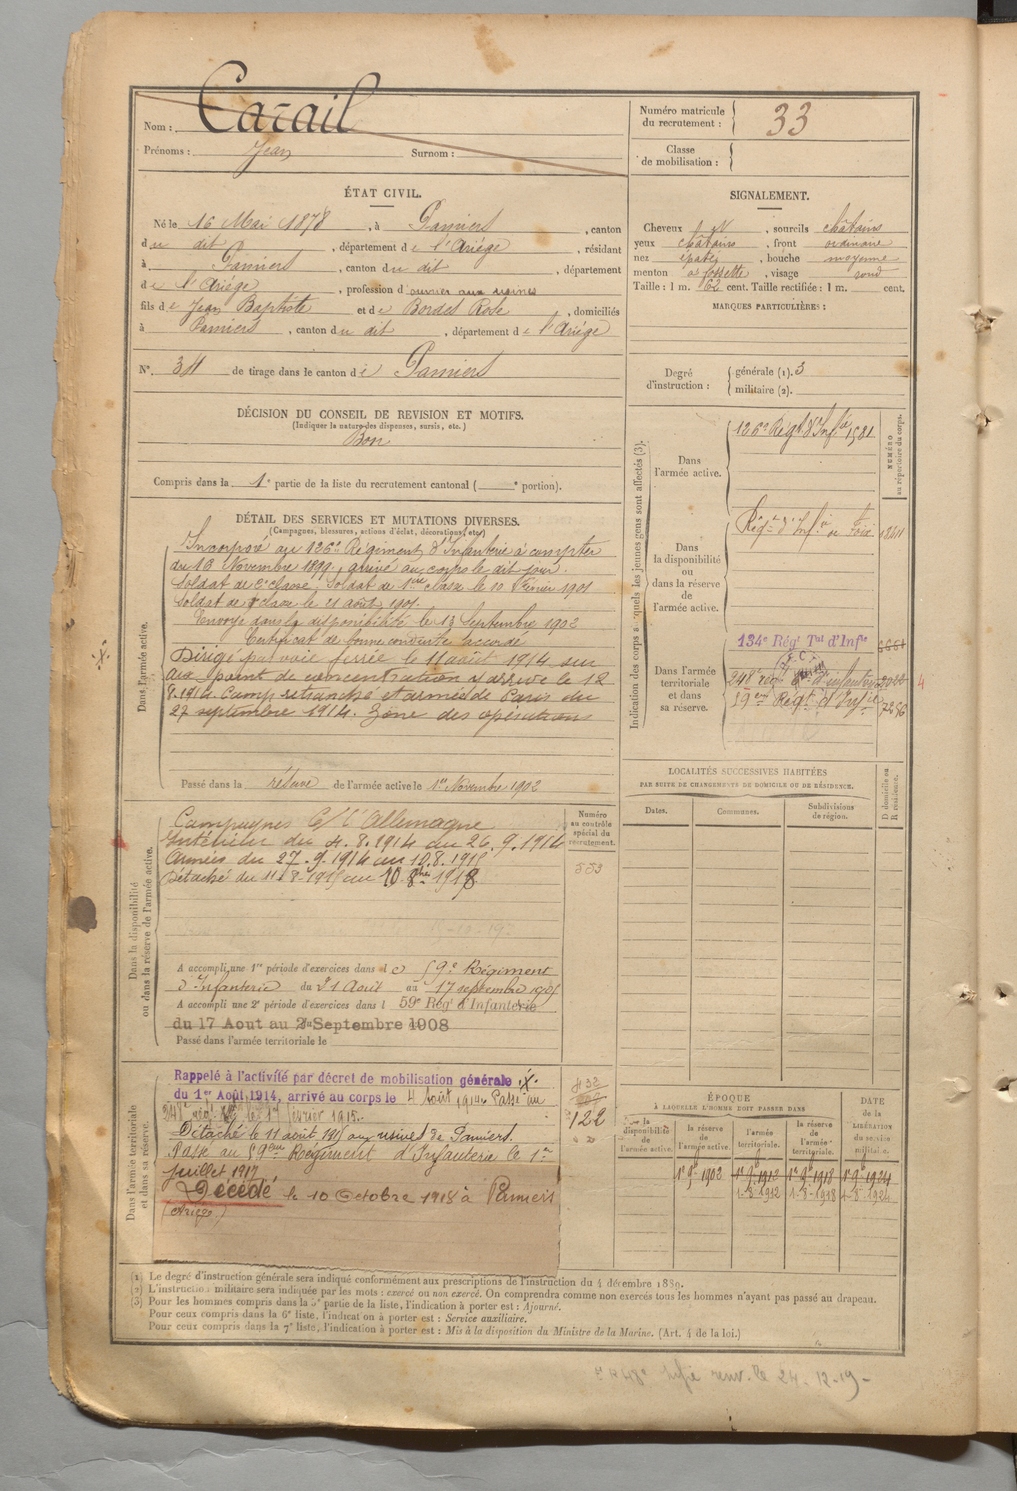 Nom : Carail
Prénoms : Jean Surnom :
Numéro matricule du recrutement : 33
Classe de mobilisation :
ÉTAT CIVIL.
Né le 16 Mai 1878, à Pamiers, canton
du dit, département de l'Ariège, résidant
à Pamiers, canton du dit, département
de l'Ariège, profession d'ouvrier aux usines
fils de Jean Baptiste et de Bordes Rose, domiciliés
à Pamiers, canton du dit, département de l'Ariège
N° 34 de tirage dans le canton de Pamiers
SIGNALEMENT.
Cheveux N, sourcils châtains
yeux châtains, front ordinaire
nez épaté, bouche moyenne
menton à fossette, visage rond
Taille : 1 m. 62 cent. Taille rectifiée : 1 m. cent.
MARQUES PARTICULIÈRES :
Degré d'instruction : générale (1). 3
militaire (2).
DÉCISION DU CONSEIL DE REVISION ET MOTIFS.
(Indiquer la nature des dispenses, sursis, etc.)
Bon
Compris dans la 1e partie de la liste du recrutement cantonal ( e portion).
DÉTAIL DES SERVICES ET MUTATIONS DIVERSES.
(Campagnes, blessures, actions d'éclat, décorations, etc.)
Dans l'armée active.
Incorporé au 126e Régiment d'Infanterie à compter
du 16 Novembre 1899, arrivé au corps le dit jour.
Soldat de 2e classe. Soldat de 1ère classe le 10 Février 1901
Soldat de classe le 21 août 1901.
Envoyé dans la disponibilité le 13 Septembre 1902
Certificat de bonne conduite accordé
Dirigé par voie ferrée le 11 août 1914 sur
point de concentration y arrive le 12
8.1914. Camp retranché et armées de Paris du
27 septembre 1914. Zône des opérations
Passé dans la réserve de l'armée active le 1er Novembre 1902
Indication des corps auxquels les jeunes gens sont affectés (3).
NUMÉRO au répertoire du corps.
Dans l'armée active. 126e Régt d'Infie 1581
Dans la disponibilité ou dans la réserve de l'armée active. Régt d'Infie de Foix
Dans l'armée territoriale et dans sa réserve. 134e Régt Tal d'Infie
248e d'infanterie
59e Régt d'Infie
LOCALITÉS SUCCESSIVES HABITÉES
PAR SUITE DE CHANGEMENTS DE DOMICILE OU DE RÉSIDENCE.
Dates. Communes. Subdivisions de région. D domicile ou R résidence.
Dans la disponibilité ou dans la réserve de l'armée active.
Numéro au contrôle spécial du recrutement.
553
Campagnes C/ l'Allemagne
Intérieur du 4.8.1914 au 26.9.1914
Armées du 27.9.1914 au 10.8.1915
Détaché du 11.8.1915 au 10 8bre 1918
A accompli une 1re période d'exercices dans le 59e Régiment
d'Infanterie du 21 Août au 17 septembre 1905
A accompli une 2e période d'exercices dans l 59e Régt d'Infanterie
du 17 Aout au Septembre 1908
Passé dans l'armée territoriale le
Dans l'armée territoriale et dans sa réserve.
Rappelé à l'activité par décret de mobilisation générale
du 1er Août 1914, arrivé au corps le 4 Août 1914. Passé au
248e février 1915.
Détaché le 11 août 1915 aux usines de Pamiers.
Passé au 59ème Régiment d'Infanterie le 1er
juillet 1917
Décédé le 10 Octobre 1918 à Pamiers
(Ariège)
122
ÉPOQUE
À LAQUELLE L'HOMME DOIT PASSER DANS
la disponibilité de l'armée active. la réserve de l'armée active. l'armée territoriale. la réserve de l'armée territoriale. DATE de la LIBÉRATION du service militaire.
1er 9b 1902 1er 9b 1912 1er 9b 1918 1er 9b 1924
1-8-1912 1-8-1918 1-8-1924
(1) Le degré d'instruction générale sera indiqué conformément aux prescriptions de l'instruction du 4 décembre 1889.
(2) L'instruction militaire sera indiquée par les mots : exercé ou non exercé. On comprendra comme non exercés tous les hommes n'ayant pas passé au drapeau.
(3) Pour les hommes compris dans la 5e partie de la liste, l'indication à porter est : Ajourné.
Pour ceux compris dans la 6e liste, l'indication à porter est : Service auxiliaire.
Pour ceux compris dans la 7e liste, l'indication à porter est : Mis à la disposition du Ministre de la Marine. (Art. 4 de la loi.)
renv. le 24-12-19-